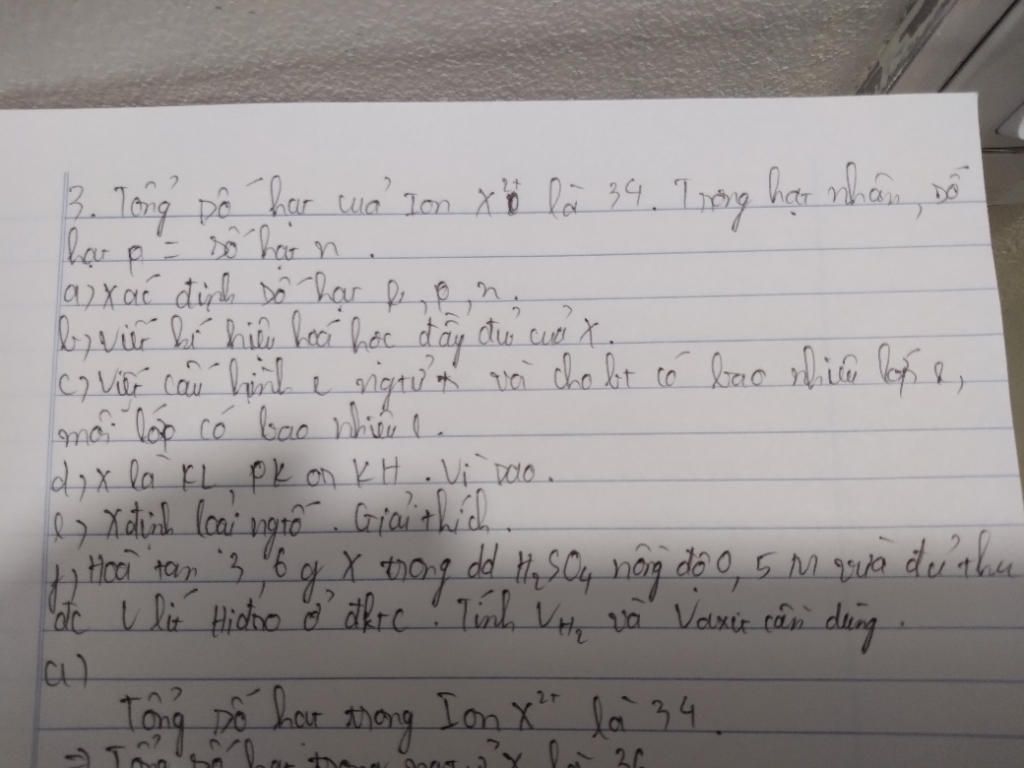 3. Tổng số hạt của Ion X²⁺ là 34. Trong hạt nhân, số
hạt p = số hạt n.
a) Xác định số hạt e, p, n.
b) Viết kí hiệu hoá học đầy đủ của X.
c) Viết cấu hình e ngtử và cho bt có bao nhiêu lớp e,
mỗi lớp có bao nhiêu e.
d) X là KL, PK or KH. Vì sao.
e) Xđịnh loại ngtố. Giải thích.
f) Hoà tan 3,6 g X trong dd H₂SO₄ nồng độ 0,5 M vừa đủ thu
đc V lít Hiđro ở đktc. Tính V_H₂ và V axit cần dùng.
a)
Tổng số hạt trong Ion X²⁺ là 34.
⇒ Tổng số hạt trong X là 36